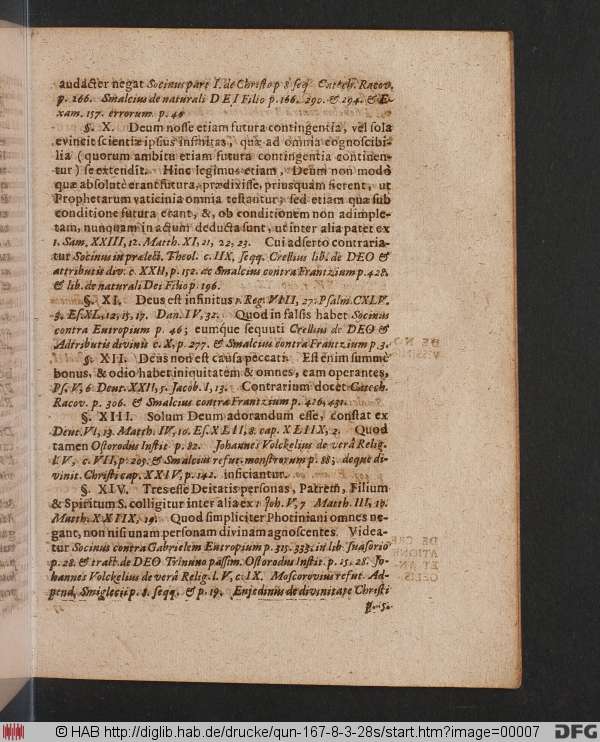 audacter negat Socinus part I. de Christo p 8 seq Catech. Racov.
p. 166. Smalcius de naturali DEI Filio p. 166. 290. & 294. & E-
xam. 157. errorum p. 48
§. X. Deum nosse etiam futura contingentia, vel sola
evincit scientiæ ipsius infinitas, quæ ad omnia cognoscibi-
lia (quorum ambitu etiam futura contingentia continen-
tur) se extendit. Hinc legimus etiam, Deum non modò
quæ absolutè erant futura, prædixisse, priusquam fierent, ut
Prophetarum vaticinia omnia testantur; sed etiam quæ sub
conditione futura erant, &, ob conditionem non adimple-
tam, nunquam in actum deducta sunt, ut inter alia patet ex
1. Sam, XXIII, 12. Matth. XI, 21, 22, 23. Cui adserto contraria-
tur Socinus in prælect. Theol. c. IIX, seqq. Crellius lib. de DEO &
attributis div. c. XXII, p. 152. ac Smalcius contra Frantzium p. 428.
& lib. de naturali Dei Filio p. 196.
§. XI. Deus est infinitus 1. Reg. VIII, 27. Psalm. CXLV.
3. Es. XL, 12, 15, 17. Dan. IV, 32. Quod in falsis habet Socinus
contra Entropium p. 46; eumque sequuti Crellius de DEO &
Adtributis divinis c. X, p. 277. & Smalcius contra Frantzium p. 3.
§. XII. Deus non est causa peccati. Est enim summè
bonus, & odio habet iniquitatem & omnes, eam operantes,
Ps. V, 6 Deut. XXII, 5. Jacob. I, 13. Contrarium docet Catech.
Racov. p. 306. & Smalcius contra Frantzium p. 426, 431.
§. XIII. Solum Deum adorandum esse, constat ex
Deut. VI, 13. Matth. IV, 10. Es. XLII, 8. cap. XLIIX, 2. Quod
tamen Ostorodus Instit p. 82. Johannes Volckelius de verâ Relig.
l. V, c. VII, p. 209. & Smalcius refut. monstrorum p. 88; deque di-
vinit. Christi cap. XXIV, p. 142. inficiantur.
§. XIV. Tres esse Deitatis personas, Patrem, Filium
& Spiritum S. colligitur inter alia ex 1 Joh. V, 7 Matth. III, 17.
Matth. XXIIX, 19. Quod simpliciter Photiniani omnes ne-
gant, non nisi unam personam divinam agnoscentes. Videa-
tur Socinus contra Gabrielem Entropium p. 315. 333. in lib. suasorio
p. 28. & tract. de DEO Trinuno passim. Ostorodus Instit. p. 15. 28. Jo-
hannes Volckelius de verâ Relig. l. V, c. IX. Moscorovius refut. Ad-
pend. Smiglecii p. 8. seqq. & p. 19. Enjedinus de divinitate Christi
p. 5.
© HAB http://diglib.hab.de/drucke/qun-167-8-3-28s/start.htm?image=00007
DFG